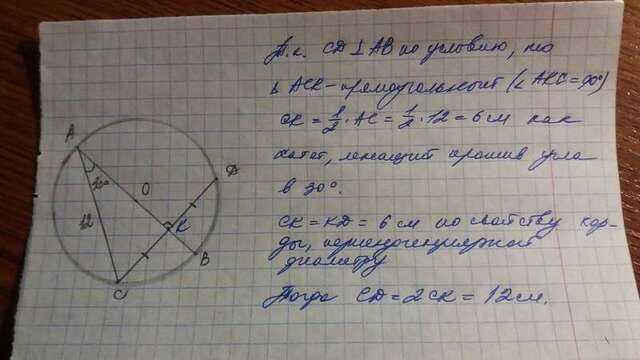 A
30°
12
O
C
K
B
D
Т.к. CD ⊥ AB по условию, то
∆ ACK - прямоугольный (∠ AKC = 90°)
CK = 1/2 · AC = 1/2 · 12 = 6 см как
катет, лежащий против угла
в 30°.
CK = KD = 6 см по свойству хор-
ды, перпендикулярной
диаметру
Тогда CD = 2CK = 12 см.